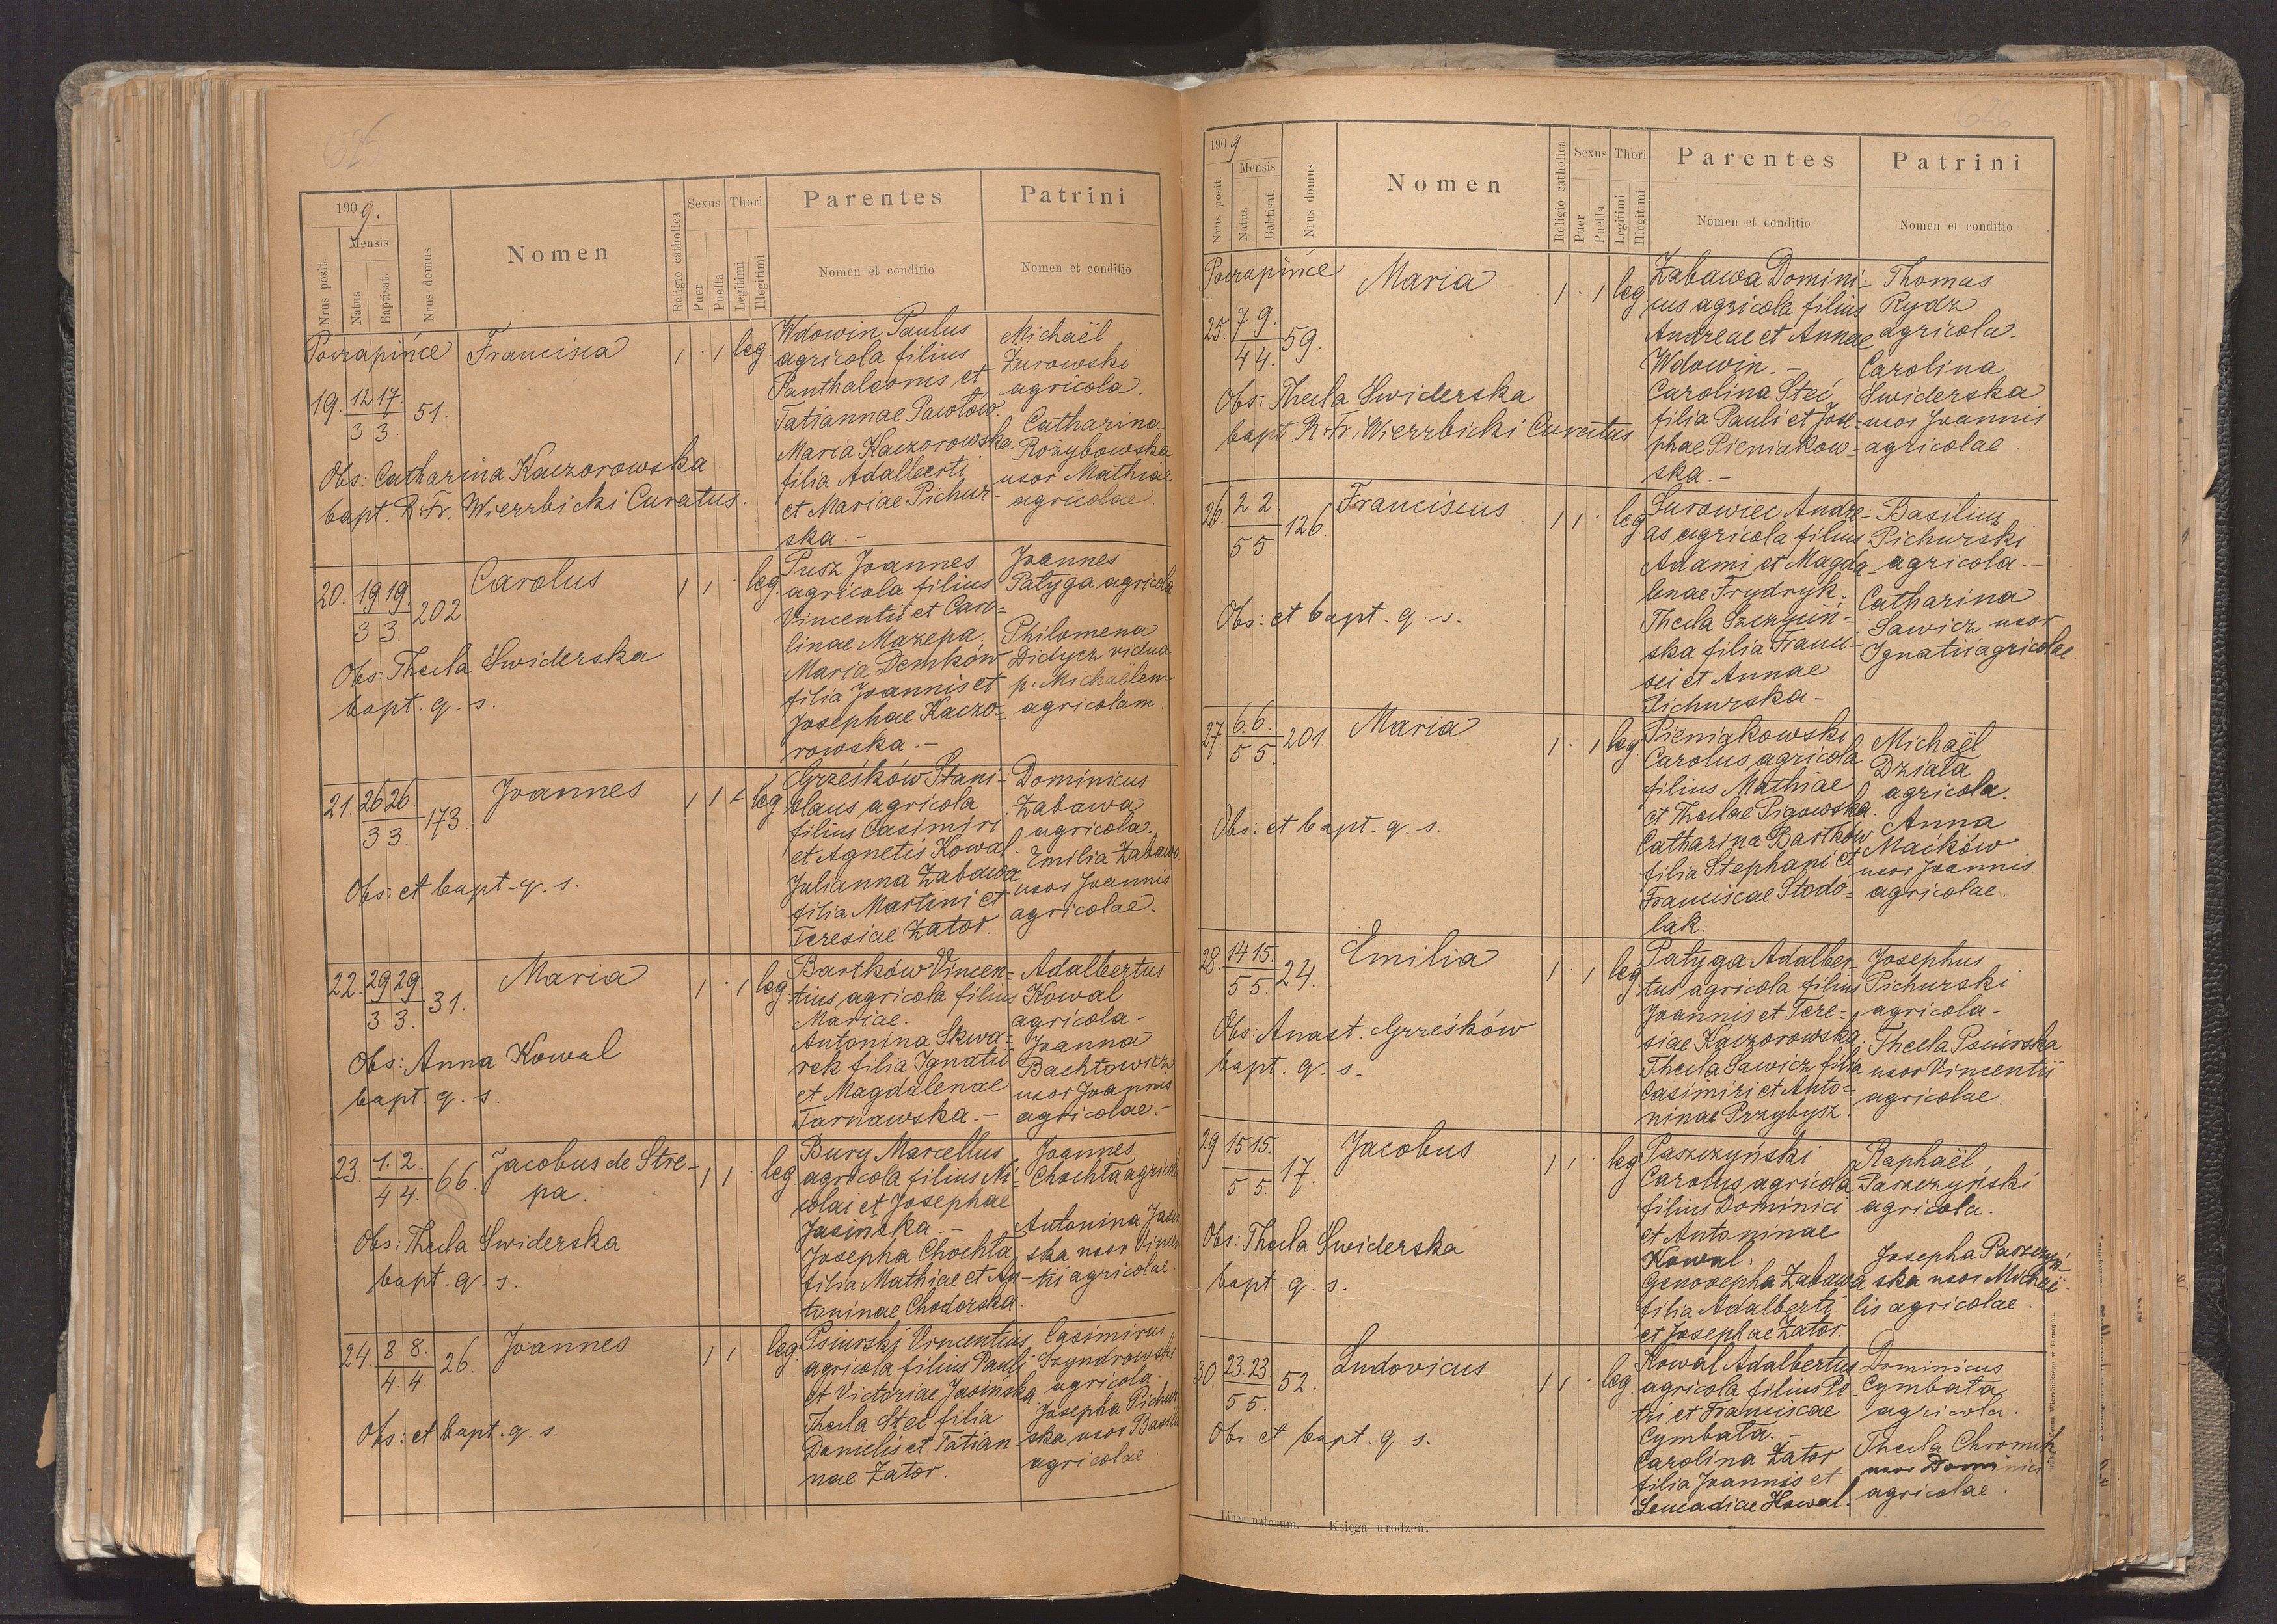 625
1909.
Nrus posit.
Mensis
Natus
Baptisat.
Nrus domus
Nomen
Religio catholica
Sexus
Puer
Puella
Thori
Legitimi
Illegitimi
Parentes
Nomen et conditio
Patrini
Nomen et conditio
Poczapińce
19. 12 17. 51.
3 3.
Francisca
1 . 1 leg
Wdowin Paulus
agricola filius
Panthaleonis et
Tatiannae Pawłow.
Maria Kaczorowska
filia Adalberti
et Mariae Pichur-
ska.-
Michaël
Żurowski
agricola.
Catharina
Rozybowska
uxor Mathiae
agricolae.
Obs: Catharina Kaczorowska.
bapt. R. Fr. Wierzbicki Curatus.
20. 19 19. 202
3 3.
Carolus
1 1 . leg.
Pusz Joannes
agricola filius
Vincentii et Caro=
linae Mazepa.
Maria Demków
filia Joannis et
Josephae Kaczo=
rowska.-
Joannes
Patyga agricola
Philomena
Didycz vidua
p. Michaëlem
agricolam.
Obs: Thecla Świderska
bapt. q. s.
21. 26 26. 173.
3 3.
Joannes
1 1 - leg
Grześków Stani-
slaus agricola
filius Casimiri
et Agnetis Kowal.
Julianna Zabawa
filia Martini et
Teresiae Zator.
Dominicus
Zabawa
agricola.
Emilia Zabawa
uxor Joannis
agricolae.
Obs: et bapt. q. s.
22. 29 29 31.
3 3.
Maria
1 . 1 leg.
Bartków Vincen=
tius agricola filius
Mariae.
Antonina Skwa=
rek filia Ignatii
et Magdalenae
Tarnawska.-
Adalbertus
Kowal
agricola-
Joanna
Bachtowicz
uxor Joannis
agricolae.-
Obs: Anna Kowal
bapt. q. s.
23. 1. 2. 66.
4 4.
Jacobus de Stre-
pa.
1 1 . leg.
Bury Marcellus
agricola filius Ni=
colai et Josephae
Jasińska.-
Josepha Chochta,
filia Mathiae et An-
toninae Chodorska.
Joannes
Chochta agricola
Antonina Jasiń
ska uxor Vincen
tii agricolae
Obs: Thecla Świderska
bapt. q. s.
24. 8 8. 26.
4. 4.
Joannes
1 1 . leg.
Psiurski Vincentius
agricola filius Pauli
et Victoriae Jasińska
Thecla Stec filia
Danielis et Tatian
nae Zator.
Casimirus
Szyndrowski
agricola
Josepha Pichur
ska uxor Basilii
agricolae.
Obs: et bapt. q. s.
626
1909
Nrus posit.
Mensis
Natus
Babtisat.
Nrus domus
Nomen
Religio catholica
Sexus
Puer
Puella
Thori
Legitimi
Illegitimi
Parentes
Nomen et conditio
Patrini
Nomen et conditio
Poczapińce
25. 7 9. 59.
4 4.
Maria
1 . 1 leg
Zabawa Domini-
cus agricola filius
Andreae et Annae
Wdowin.-
Carolina Stec,
filia Pauli et Jose-
phae Pieniakow-
ska.-
Thomas
Rydz
agricola.
Carolina
Świderska
uxor Joannis
agricolae.
Obs: Thecla Świderska
bapt. R. Fr. Wierzbicki Curatus
26. 2 2. 126.
5 5.
Franciscus
1 1 . leg.
Surowiec Andre-
as agricola filius
Adami et Magda-
lenae Frydryk.
Thecla Szczyuń=
ska filia Franci-
sci et Annae
Pichurska-
Basilius
Pichurski
agricola.-
Catharina
Sawicz uxor
Ignatii agricolae.
Obs: et bapt. q. s.
27. 6. 6. 201.
5 5.
Maria
1 . 1 leg.
Pieniakowski
Carolus agricola
filius Mathiae
et Theclae Pigowska.
Catharina Bartków
filia Stephani et
Franciscae Stodo=
lak.
Michaël
Działa
agricola.
Anna
Maćków
uxor Joannis.
agricolae.
Obs: et bapt. q. s.
28. 14 15. 24.
5 5.
Emilia
1 . 1 leg.
Patyga Adalber-
tus agricola filius
Joannis et Tere=
siae Kaczorowska.
Thecla Sawicz filia
Casimiri et Anto=
ninae Przybysz.
Josephus
Pichurski
agricola-
Thecla Psiurska
uxor Vincentii
agricolae.
Obs: Anast. Grześków
bapt. q. s.
29 15 15. 17.
5 5.
Jacobus
1 1 . leg
Paszczyński
Carolus agricola
filius Dominici
et Antoninae
Kowal.
Genovepha Zabawa
filia Adalberti
et Josephae Zator.
Raphaël
Paszczyński
agricola.
Josepha Paszczyń-
ska uxor Michaë-
lis agricolae.
Obs: Thecla Świderska
bapt. q. s.
30. 23. 23. 52.
5 5.
Ludovicus
1 1 . leg.
Kowal Adalbertus
agricola filius Pe-
tri et Franciscae
Cymbała.-
Carolina Zator
filia Joannis et
Leucadiae Kowal.
Dominicus
Cymbała
agricola.
Thecla Chromik
uxor Dominici
agricolae.
Obs: et bapt. q. s.
Liber natorum. Księga urodzeń.